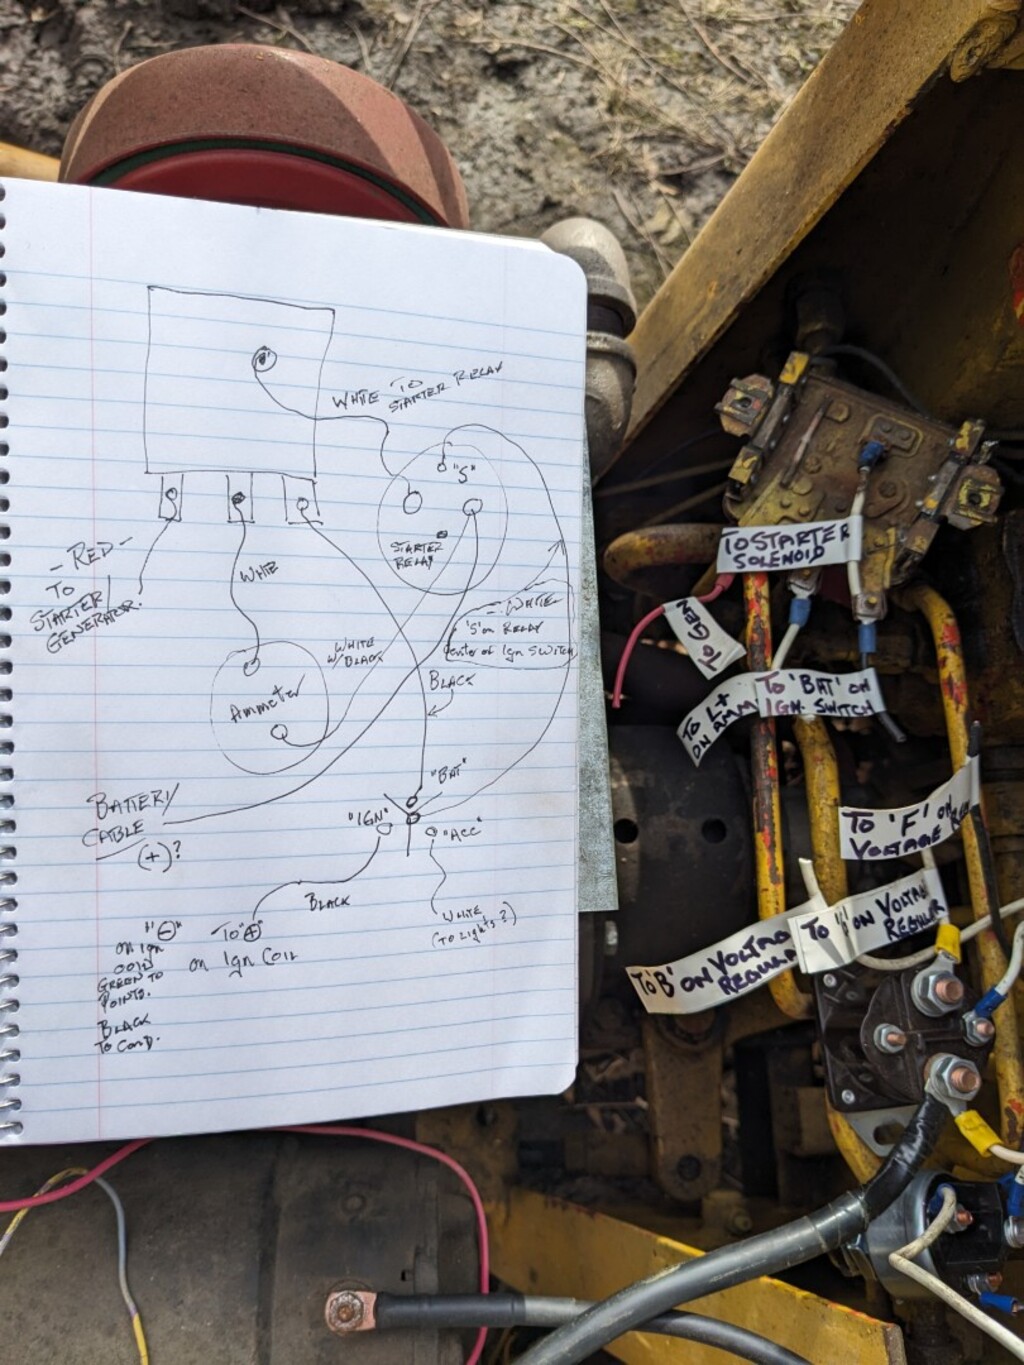 WHITE TO
STARTER RELAY
"S"
STARTER
RELAY
- RED -
TO
STARTER
GENERATOR.
WHITE
WHITE
W/BLACK
- WHITE -
'S' on RELAY
center of Ign SWITCH
Ammeter
BLACK
BATTERY
CABLE
(+)?
"BAT"
"IGN"
"ACC"
BLACK
WHITE
(TO Lights?)
"⊖"
on Ign
COIL
GREEN TO
POINTS.
BLACK
TO COND.
TO "⊕"
on Ign COIL
TO STARTER
SOLENOID
TO GEN
TO L+
ON AMM
TO 'BAT' ON
IGN. SWITCH
TO 'F' ON
VOLTAGE REG
TO 'B' ON VOLTAG
REGULA
ON VOLTAG
REGULAR